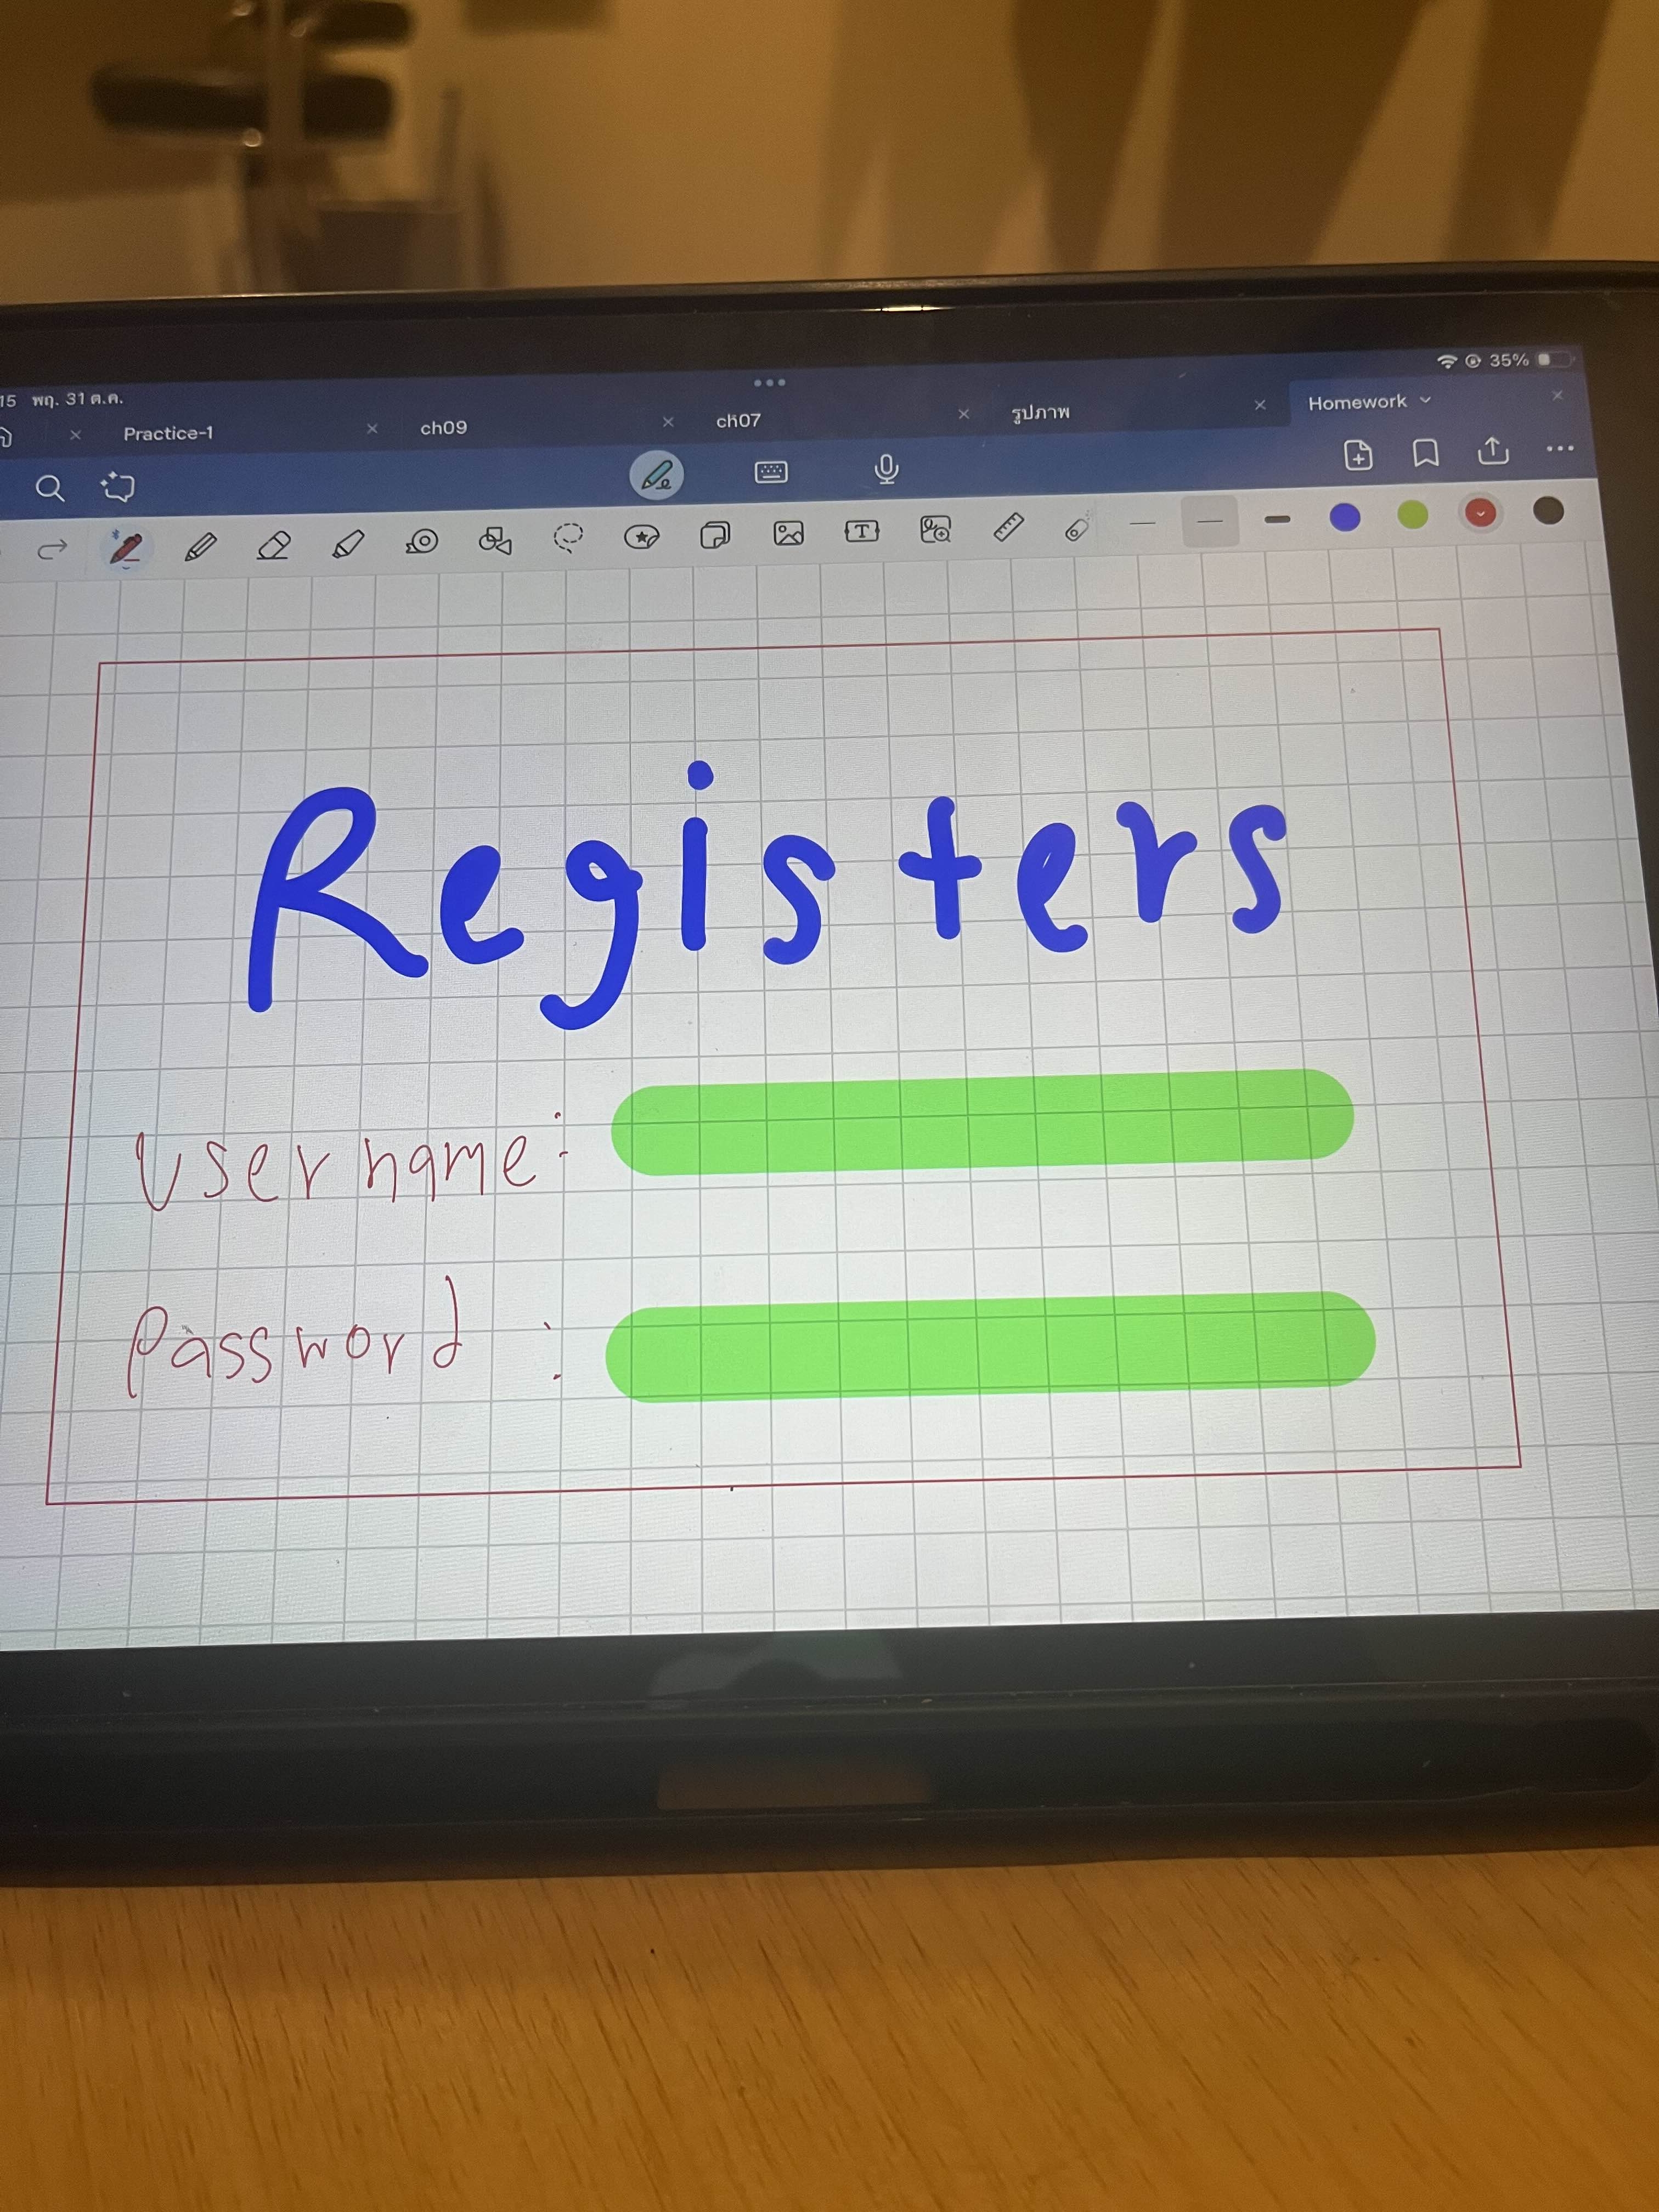 15 พฤ. 31 ต.ค.
35%
Practice-1
ch09
ch07
รูปภาพ
Homework
T
Registers
Username:
Password :